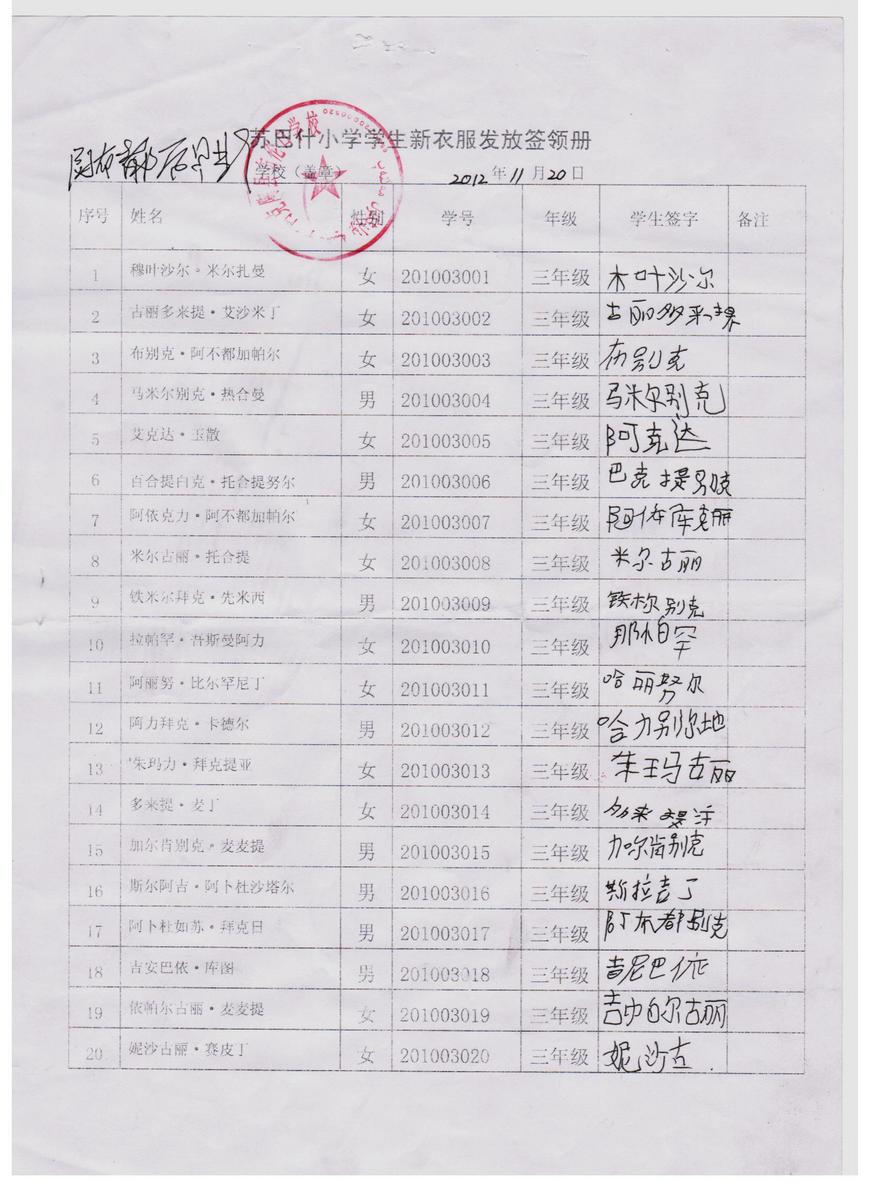 苏巴什小学学生新衣服发放签领册
学校（盖章） 2012年11月20日
序号 姓名 性别 学号 年级 学生签字 备注
1 穆叶沙尔·米尔扎曼 女 201003001 三年级 木叶沙尔
2 古丽多来提·艾沙米丁 女 201003002 三年级 古丽多来
3 布别克·阿不都加帕尔 女 201003003 三年级 布别克
4 马米尔别克·热合曼 男 201003004 三年级 马米尔别克
5 艾克达·玉散 女 201003005 三年级 阿克达
6 百合提白克·托合提努尔 男 201003006 三年级 巴克提别克
7 阿依克力·阿不都加帕尔 女 201003007 三年级 阿依库克丽
8 米尔古丽·托合提 女 201003008 三年级 米尔古丽
9 铁米尔拜克·先米西 男 201003009 三年级 铁木尔别克
10 拉帕罕·吾斯曼阿力 女 201003010 三年级 那帕罕
11 阿丽努·比尔罕尼丁 女 201003011 三年级 哈丽努尔
12 阿力拜克·卡德尔 男 201003012 三年级 哈力别尔地
13 朱玛力·拜克提亚 女 201003013 三年级 朱玛古丽
14 多来提·麦丁 女 201003014 三年级 多来提
15 加尔肖别克·麦麦提 男 201003015 三年级 加尔肯别克
16 斯尔阿吉·阿卜杜沙塔尔 男 201003016 三年级 斯拉吉丁
17 阿卜杜如苏·拜克日 男 201003017 三年级 阿不都别克
18 吉安巴依·库图 男 201003018 三年级 吉尼巴依
19 依帕尔古丽·麦麦提 女 201003019 三年级 吉帕尔古丽
20 妮沙古丽·赛皮丁 女 201003020 三年级 妮沙古